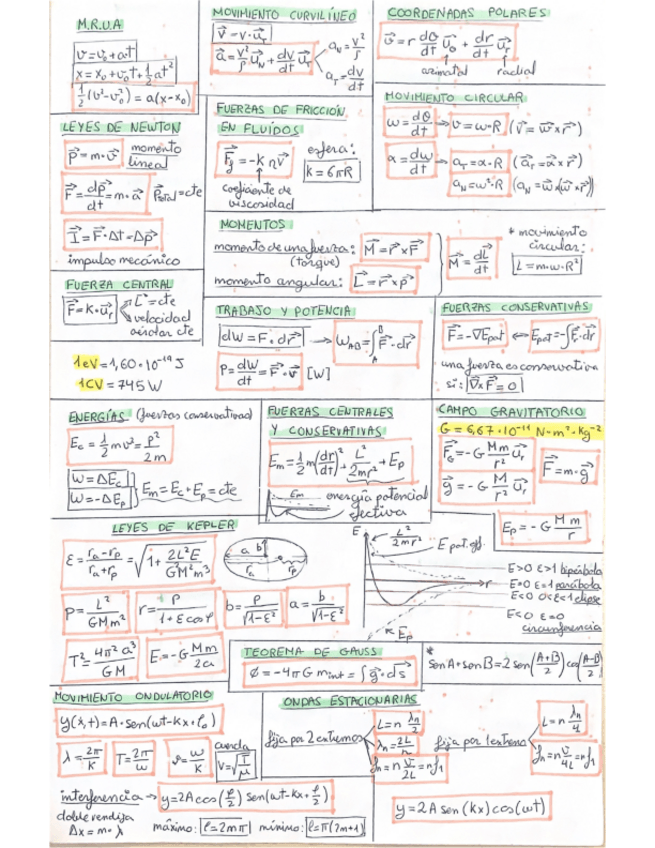 M.R.U.A
v = v₀ + at
x = x₀ + v₀t + ½at²
½(v² - v₀²) = a(x - x₀)
MOVIMIENTO CURVILÍNEO
v⃗ = v · u⃗ₜ
a⃗ = v²/ρ u⃗_N + dv/dt u⃗ₜ
a_N = v²/ρ
a_T = dv/dt
COORDENADAS POLARES
v⃗ = r dθ/dt u⃗_θ + dr/dt u⃗_r
azimutal radial
LEYES DE NEWTON
p⃗ = m · v⃗ momento lineal
F⃗ = dp⃗/dt = m · a⃗ p⃗_total = cte
I⃗ = F⃗ · Δt = Δp⃗
impulso mecánico
FUERZAS DE FRICCIÓN
EN FLUÍDOS
esfera:
k = 6πR
coeficiente de
viscosidad
MOVIMIENTO CIRCULAR
ω = dθ/dt → v = ω · R (v⃗ = w⃗ × r⃗)
α = dω/dt → a_T = α · R (a⃗_T = α⃗ × r⃗)
a_N = ω² · R (a_N = w⃗ × (w⃗ × r⃗))
MOMENTOS
momento de una fuerza: M⃗ = r⃗ × F⃗
(torque)
momento angular: L⃗ = r⃗ × p⃗
M⃗ = dL⃗/dt
* movimiento
circular:
L = m · w · R²
FUERZA CENTRAL
F⃗ = k · u⃗_r
L⃗ = cte
velocidad
aerolar cte
1eV = 1,60 · 10⁻¹⁹ J
1CV = 745 W
TRABAJO Y POTENCIA
dW = F · dr⃗ → W_AB = ∫_A^B F⃗ · dr⃗
P = dW/dt = F⃗ · v⃗ [W]
FUERZAS CONSERVATIVAS
F⃗ = -∇E_pot ⇔ E_pot = -∫F⃗ · dr⃗
una fuerza es conservativa
si: ∇⃗ × F⃗ = 0
ENERGÍAS (fuerzas conservativas)
E_c = ½mv² = p²/2m
W = ΔE_c
W = -ΔE_p
E_m = E_c + E_p = cte
FUERZAS CENTRALES
Y CONSERVATIVAS
E_m = ½m(dr/dt)² + L²/2mr² + E_p
Em
energía potencial
efectiva
CAMPO GRAVITATORIO
G = 6,67 · 10⁻¹¹ N · m² · Kg⁻²
F⃗_G = -G Mm/r² u⃗_r
F⃗ = m · g⃗
g⃗ = -G M/r² u⃗_r
E_p = -G Mm/r
LEYES DE KEPLER
ε = (r_a - r_p)/(r_a + r_p) = √(1 + 2L²E/G²M²m³)
a b
r_a r_p
p = L²/GMm²
r = p/(1 + ε cos φ)
b = p/√(1-ε²)
a = b/√(1-ε²)
T² = 4π²a³/GM
E = -G Mm/2a
E
L²/2mr²
E pot. ef.
r
E_p
E>0 ε>1 hipérbola
E=0 ε=1 parábola
E<0 0<ε<1 elipse
E<0 ε=0
circunferencia
TEOREMA DE GAUSS
Ø = -4πG m_int = ∫g⃗ · ds⃗
* senA + senB = 2sen((A+B)/2)cos((A-B)/2)
MOVIMIENTO ONDULATORIO
y(x,t) = A · sen(wt - kx + φ₀)
λ = 2π/k
T = 2π/w
v = w/k
cuerda
V = √(T/μ)
interferencia → y = 2A cos(φ/2) sen(wt - kx + φ/2)
doble rendija
Δx = m · λ
máximo: φ = 2mπ mínimo: φ = π(2m+1)
ONDAS ESTACIONARIAS
fija por 2 extremos
L = n λn/2
λn = 2L/n
fn = n v/2L = nf₁
fija por 1 extremo
L = n λn/4
fn = n v/4L = nf₁
y = 2A sen(kx) cos(ωt)